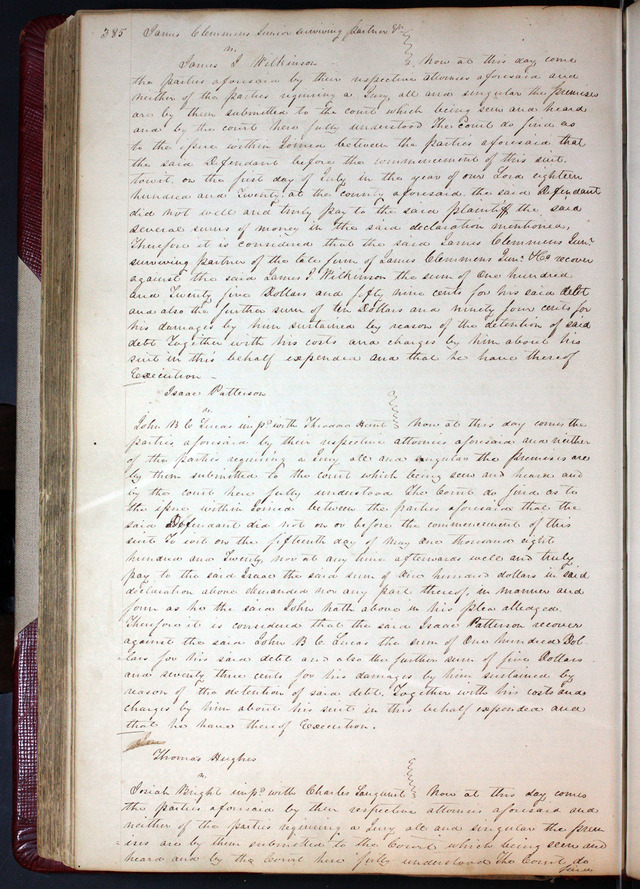 285 James Clemmens Junior surviving partner &c
vs
James J Wilkinson Now at this day come
the parties aforesaid by their respective attornies aforesaid and
neither of the parties requiring a Jury all and singular the premises
are by them submitted to the court which being seen and heard
and by the court here fully understood The Court do find as
to the issue within Joined between the parties aforesaid that
the said Defendant before the commencement of this suit.
towit, on the first day of July in the year of our Lord eighteen
hundred and Twenty, at the county aforesaid, the said Defendant
did not well and truly pay to the said plaintiff the said
several sums of money in the said declaration mentioned,
Therefore it is considered that the said James Clemmens Junr
surviving partner of the late firm of James Clemmens Junr. & Co recover
against the said James J Wilkinson the sum of One hundred
and Twenty five Dollars and fifty nine cents for his said debt
and also the further sum of ten Dollars and ninety four cents for
his damages by him sustained by reason of the detention of said
debt Together with his costs and charges by him about his
suit in this behalf expended and that he have thereof
Execution -
Isaac Patterson
vs
John B C Lucas impd. with Theodore Hunt Now at this day comes the
parties aforesaid by their respective attornies aforesaid and neither
of the parties requiring a Jury all and singular the premises are
by them submitted to the court which being seen and heard and
by the court here fully understood The Court do find as to
the issue within Joined between the parties aforesaid that the
said Defendant did not on or before the commencement of this
suit To wit on the fifteenth day of May One thousand eight
hundred and Twenty, nor at any time afterwards well and truly
pay to the said Isaac the said sum of One hundred dollars in said
declaration above demanded nor any part thereof, in manner and
form as he the said John hath above in his plea alledged.
Therefore it is considered that the said Isaac Patterson recover
against the said John B C Lucas the sum of One hundred Dol
lars for his said debt and also the further sum of five Dollars
and seventy three cents for his damages by him sustained by
reason of the detention of said debt. Together with his costs and
charges by him about his suit in this behalf expended and
that he have thereof Execution.
Thomas Hughes
vs
Josiah Bright impd. with Charles Now at this day comes
the parties aforesaid by their respective attornies aforesaid and
neither of the parties requiring a Jury all and singular the prem
ises are by them submitted to the Court which being seen and
heard and by the Court here fully understood The Court do